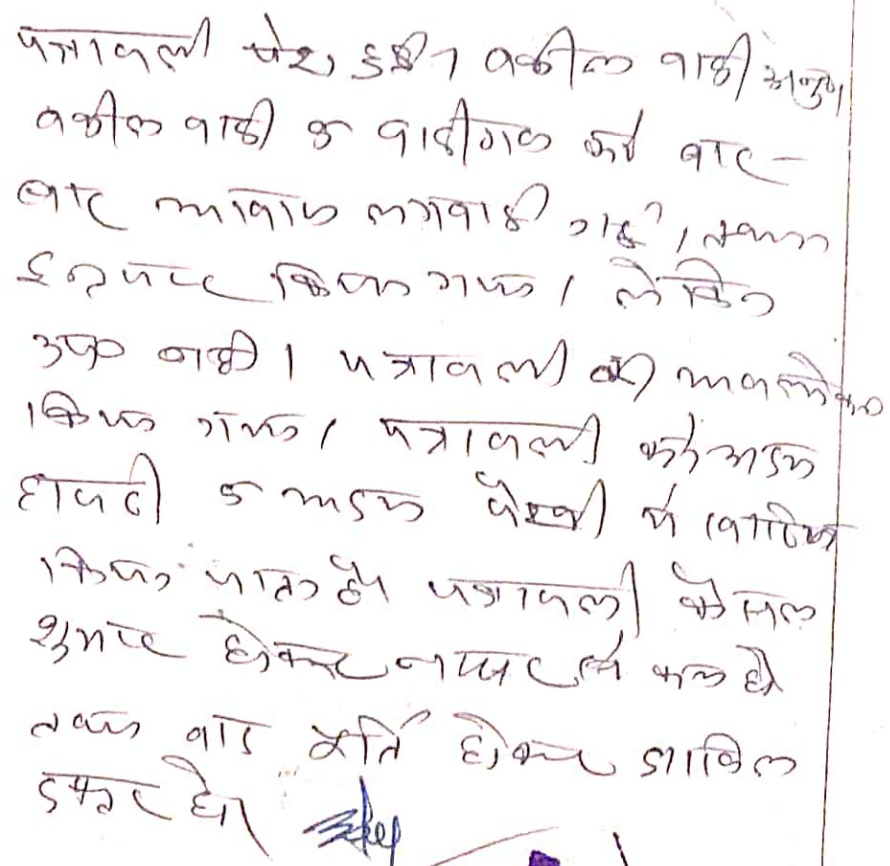 पत्रावली पेश हुई। वकील वादी अनुप
वकील वादी व वादीगण को बार-
बार आवाज लगवाई गई। तथा
इन्तजार किया गया। लेकिन
उप० नही। पत्रावली का अवलोकन
किया गया। पत्रावली को अदम
हाजरी व अदम पैरवी में खारिज
किया जाता है। पत्रावली फैसल
शुमार होकर नम्बर से कम हो
तथा बाद पूर्ति होकर दाखिल
दफ्तर हो।